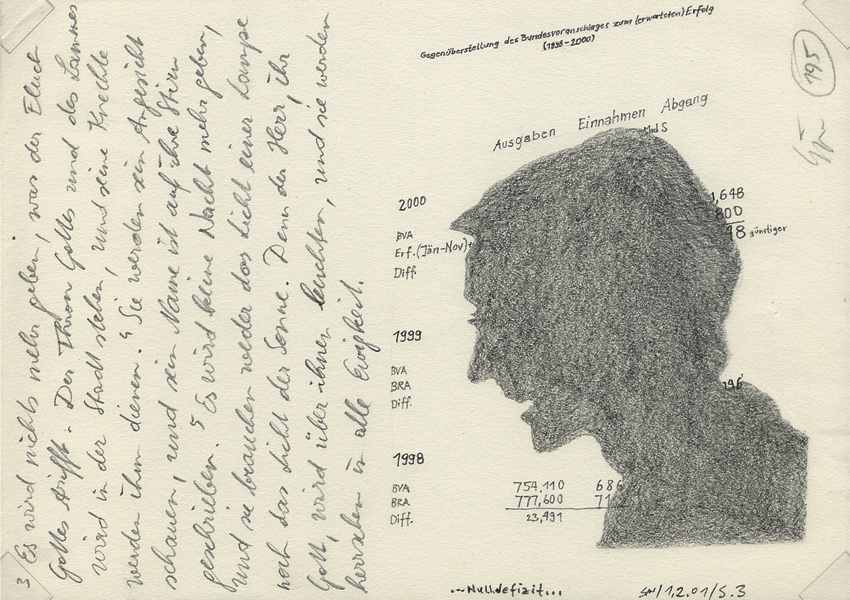 3 Es wird nichts mehr geben, was der Fluch
Gottes trifft. Der Thron Gottes und des Lammes
wird in der Stadt stehen, und seine Knechte
werden ihm dienen. 4 Sie werden sein Angesicht
schauen, und sein Name ist auf ihre Stirn
geschrieben. 5 Es wird keine Nacht mehr geben,
und sie brauchen weder das Licht einer Lampe
noch das Licht der Sonne. Denn der Herr, ihr
Gott, wird über ihnen leuchten, und sie werden
herrschen in alle Ewigkeit.
Gegenüberstellung des Bundesvoranschlages zum (erwarteten) Erfolg
(1998-2000)
195
Ausgaben Einnahmen Abgang
Mrd S
2000
1,648
BVA
800
Erf. (Jän-Nov)
18 günstiger
Diff.
1999
BVA
BRA
196
Diff.
1998
BVA 754,110 686
BRA 777,600 71
Diff. 23,491
...Nulldefizit...
SN/1.2.01/S.3